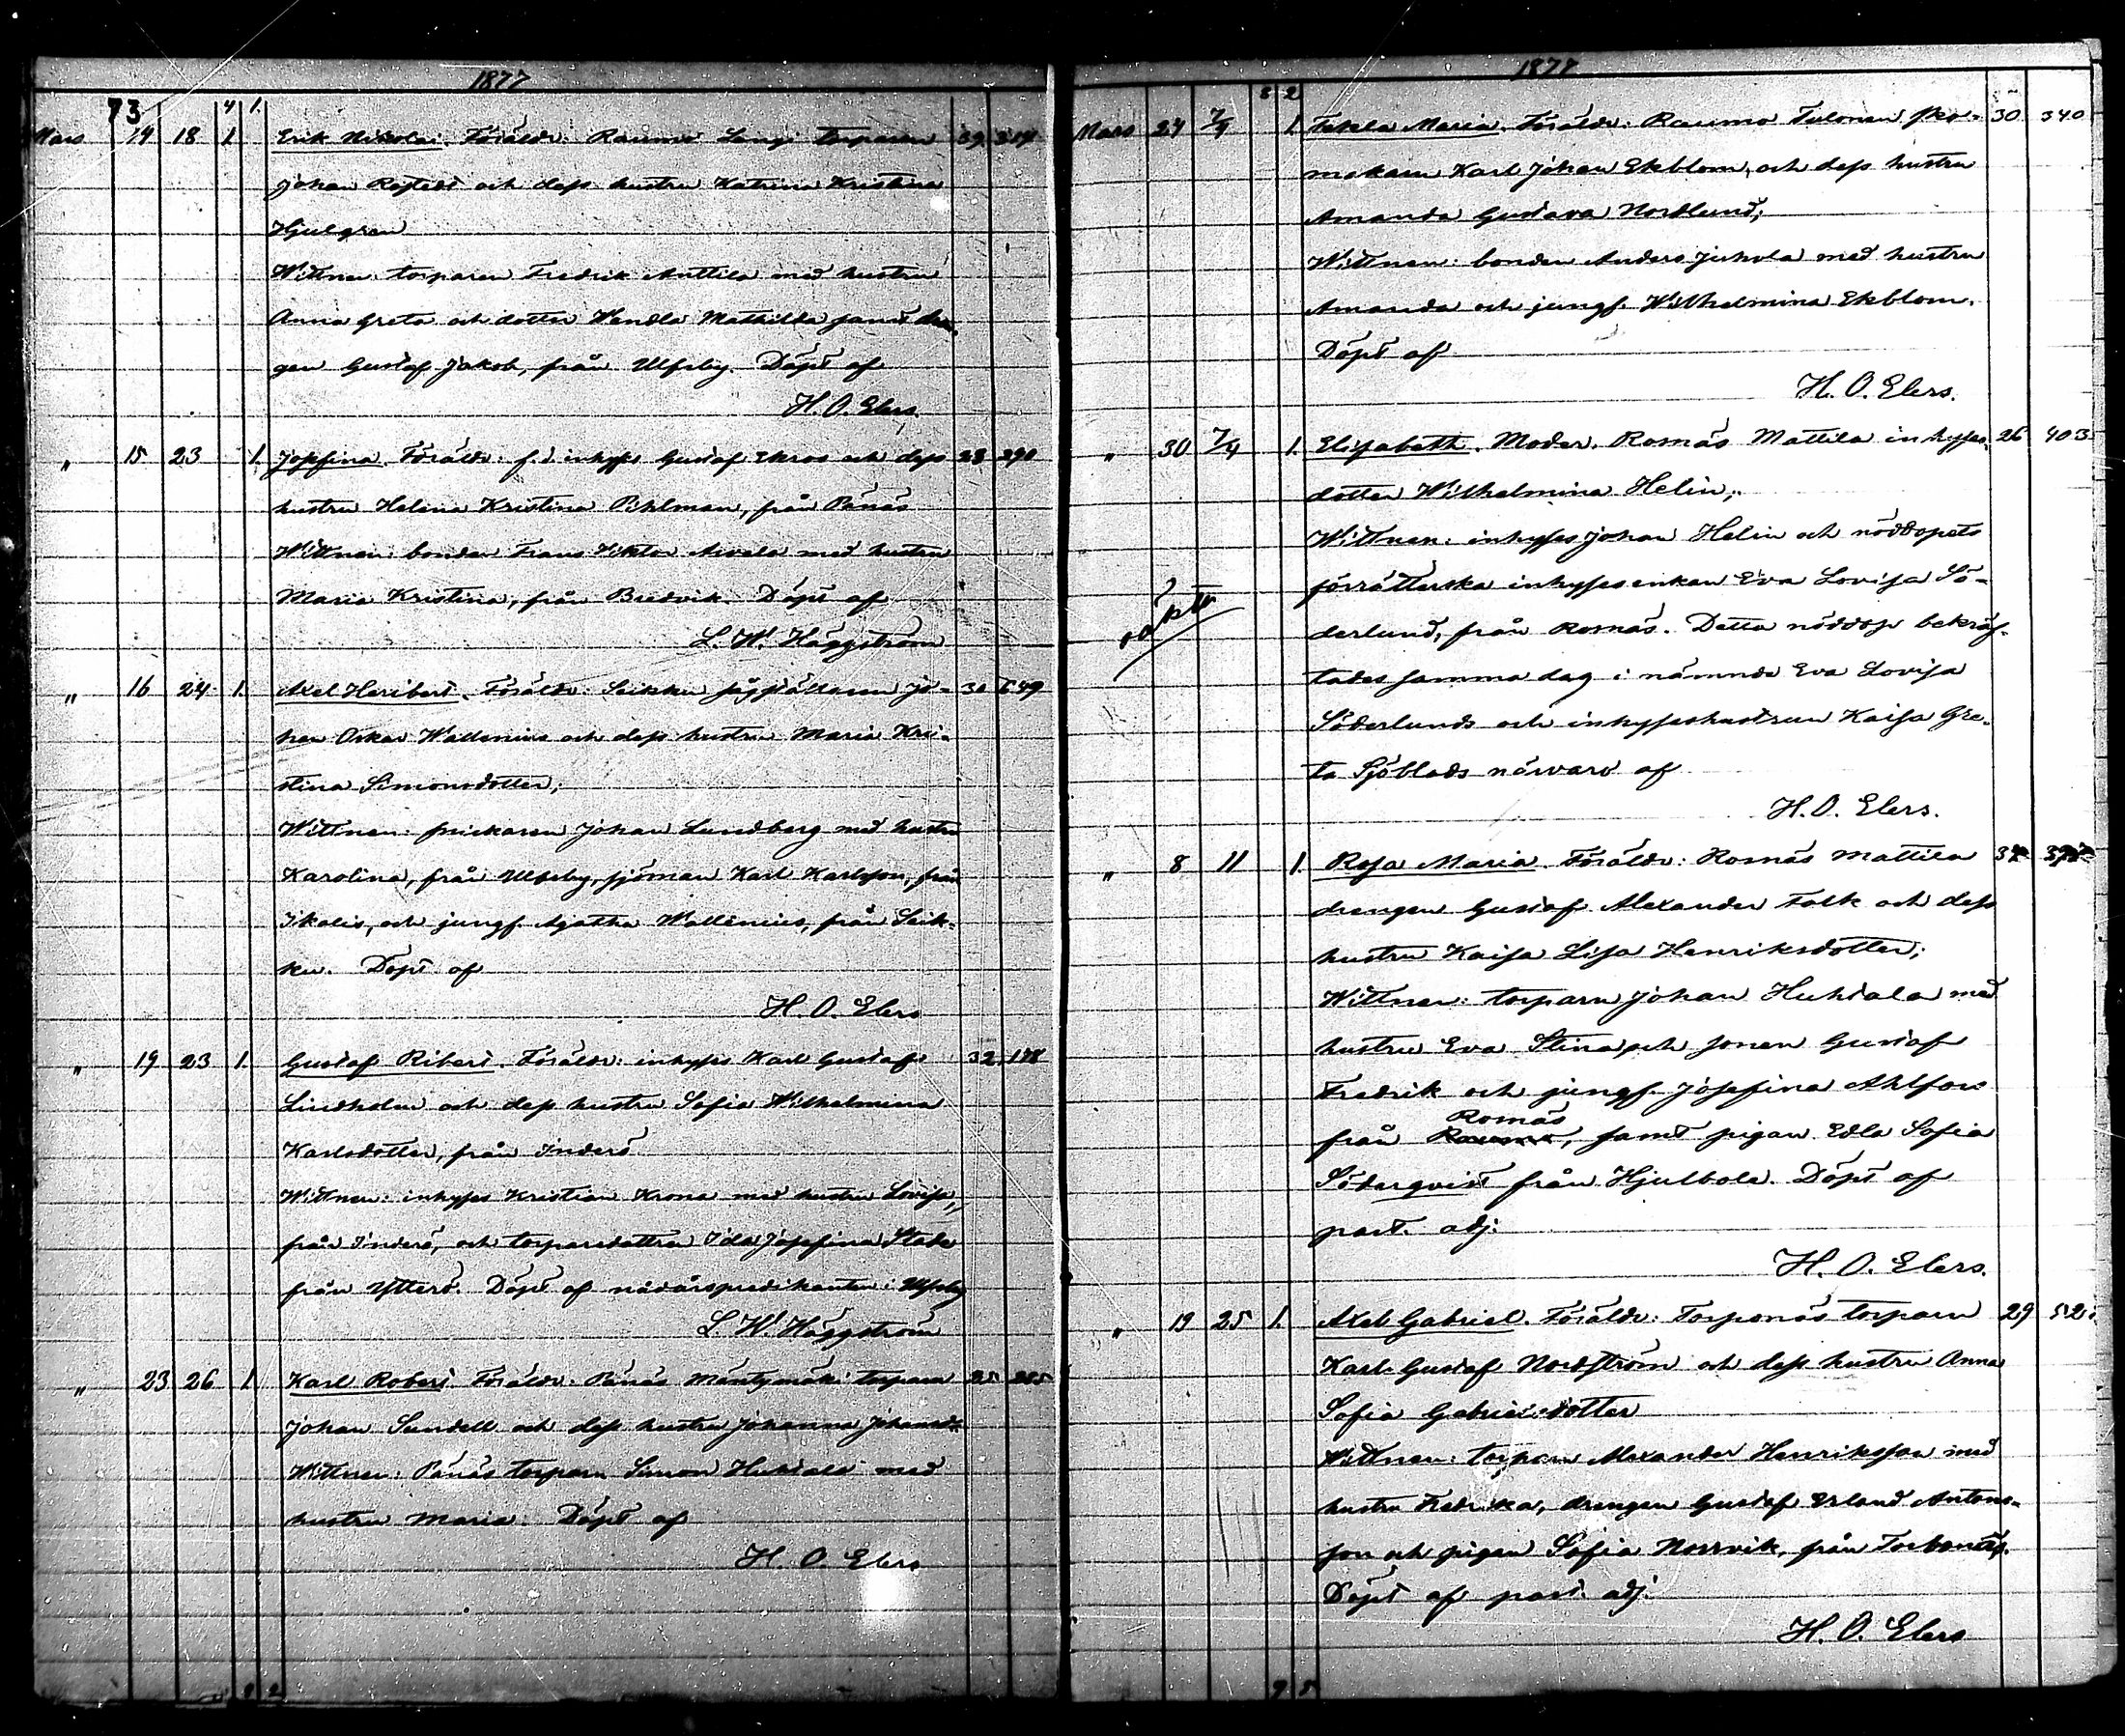 1877
73 4 1.
Mars 14 18 1 Erik Nikolai. Föräldr: Raumo Lang torparen 39 314
Johan Rostedt och dess hustru Katrina Kristina
Hjulgren
Wittnen: torparen Fredrik Anttila med hustru
Anna Greta och dotter Wendla Mathilda samt dren-
gen Gustaf Jakob, från Ulfsby. Döpt af
H. O. Elers.
" 15 23 1. Josefina. Föräldr: f.d inhyses Gustaf Ekroos och dess 28 290
hustru Helena Kristina Pihlman, från Pänäs
Wittnen: bonden Frans Viktor Arvela med hustru
Maria Kristina, från Bredvik. Döpt af
L. W. Häggström
" 16 24 1. Axel Heribert. Föräldr: Seikku Jo- 30 649
han Oskar Wallenius och dess hustru Maria Kris-
tina Simonsdotter;
Wittnen: snickaren Johan Lundberg med hustru
Karolina, från Ulfsby, sjöman Karl Karlsson, från
Ikalis, och jungf. Agatha Wallenius, från Seik-
ku. Döpt af
H. O. Elers
" 19 23 1. Gustaf Ribert. Föräldr: inhyses Karl Gustaf 32 178
Lindholm och dess hustru Sofia Wilhelmina
Karlsdotter, från Inderö
Wittnen: inhyses Kristian Krona med hustru Lovisa,
från Inderö, och torparedottren Ida Josefina
från Ytterö. Döpt af nådårspredikanten i Ulfsby
L. W. Häggström
" 23 26 1 Karl Robert Föräldr: Pänäs Mäntymäki torparen 25 285
Johan Sundell och dess hustru Johanna Johansdr.
Wittnen: Pänäs torparen Simon Huhtala med
hustru Maria. Döpt af
H. O. Elers
1877
8 2
Mars 24 7/4 1. Tekla Maria. Föräldr: Raumo Tulonen sko- 30 340
makaren Karl Johan Ekblom, och dess hustru
Amanda Gustava Nordlund;
Wittnen: bonden Anders Juhola med hustru
Amanda och jungf. Wilhelmina Ekblom.
Döpt af
H. O. Elers.
" 30 7/4 1. Elisabeth. Moder. Rosnäs Mattila inhyses- 26 403
dotter Wilhelmina Helin;
Wittnen: inhyses Johan Helin och nöddopets
förrätterska inhysesenkan Eva Lovisa Sö-
derlund, från Rosnäs. Detta nöddop bekräf-
tades samma dag i nämnde Eva Lovisa
Söderlunds och inhyseshustrun Kaisa Gre-
ta Sjöblads närvaro af
H. O. Elers.
" 8 11 1. Rosa Maria. Föräldr: Rosnäs Mattila
drengen Gustaf Alexander Falk och dess
hustru Kaisa Lisa Henriksdotter;
Wittnen: torparen Johan Huhtala med
hustru Eva Stina, och sonen Gustaf
Fredrik och jungf. Josefina Ahlfors
Rosnäs
från Raumo, samt pigan Edla Sofia
Söderqvist från Hjulbole. Döpt af
past. adj.
H. O. Elers.
" 19 25 1. Axel Gabriel. Föräldr: Torpnäs torparen 29 52
Karl Gustaf Nordström och dess hustru Anna
Sofia Gabrielsdotter
Wittnen: torparen Alexander Henriksson med
hustru Fredrika, drengen Gustaf Erland Antons-
son och pigan Sofia Norrvik, från Torbonäs.
Döpt af past. adj.
H. O. Elers
9 5